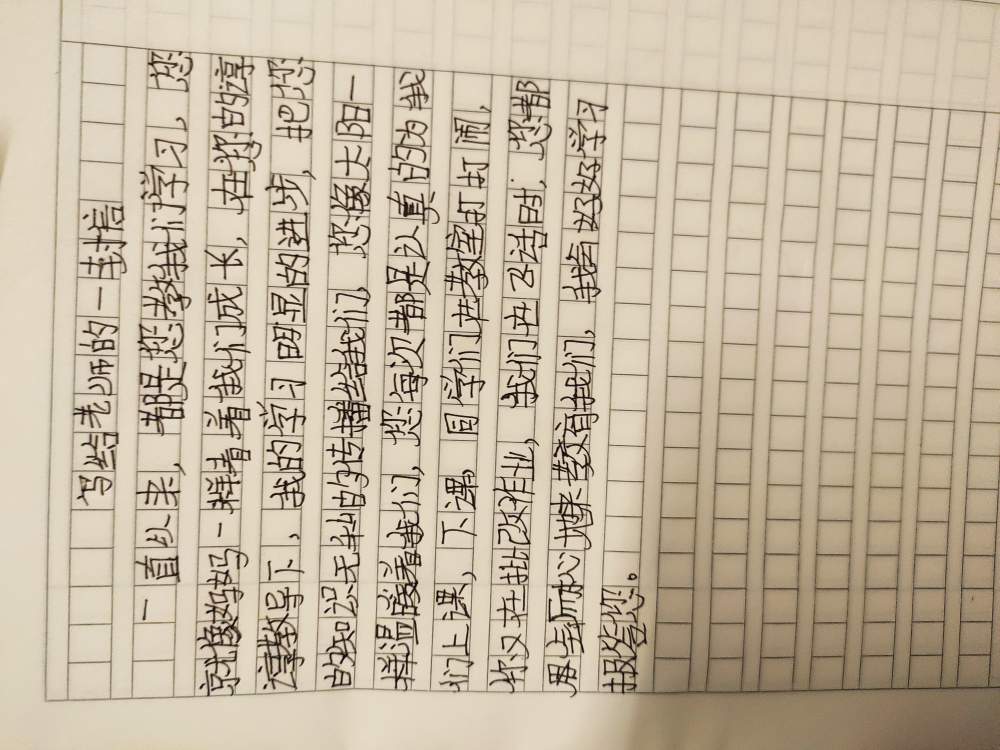 写给老师的一封信
一直以来，都是您教我们学习，您
就像妈妈一样看着我们成长，在您的谆
谆教导下，我的学习明显的进步，把您
的知识无私的传播给我们，您像太阳一
样温暖着我们，您每次都是认真的为我
们上课，下课，同学们在教室打打闹，
你又在批改作业，我们在说话时，您都
用点耐心地来教育我们，我会好好学习
报答您。